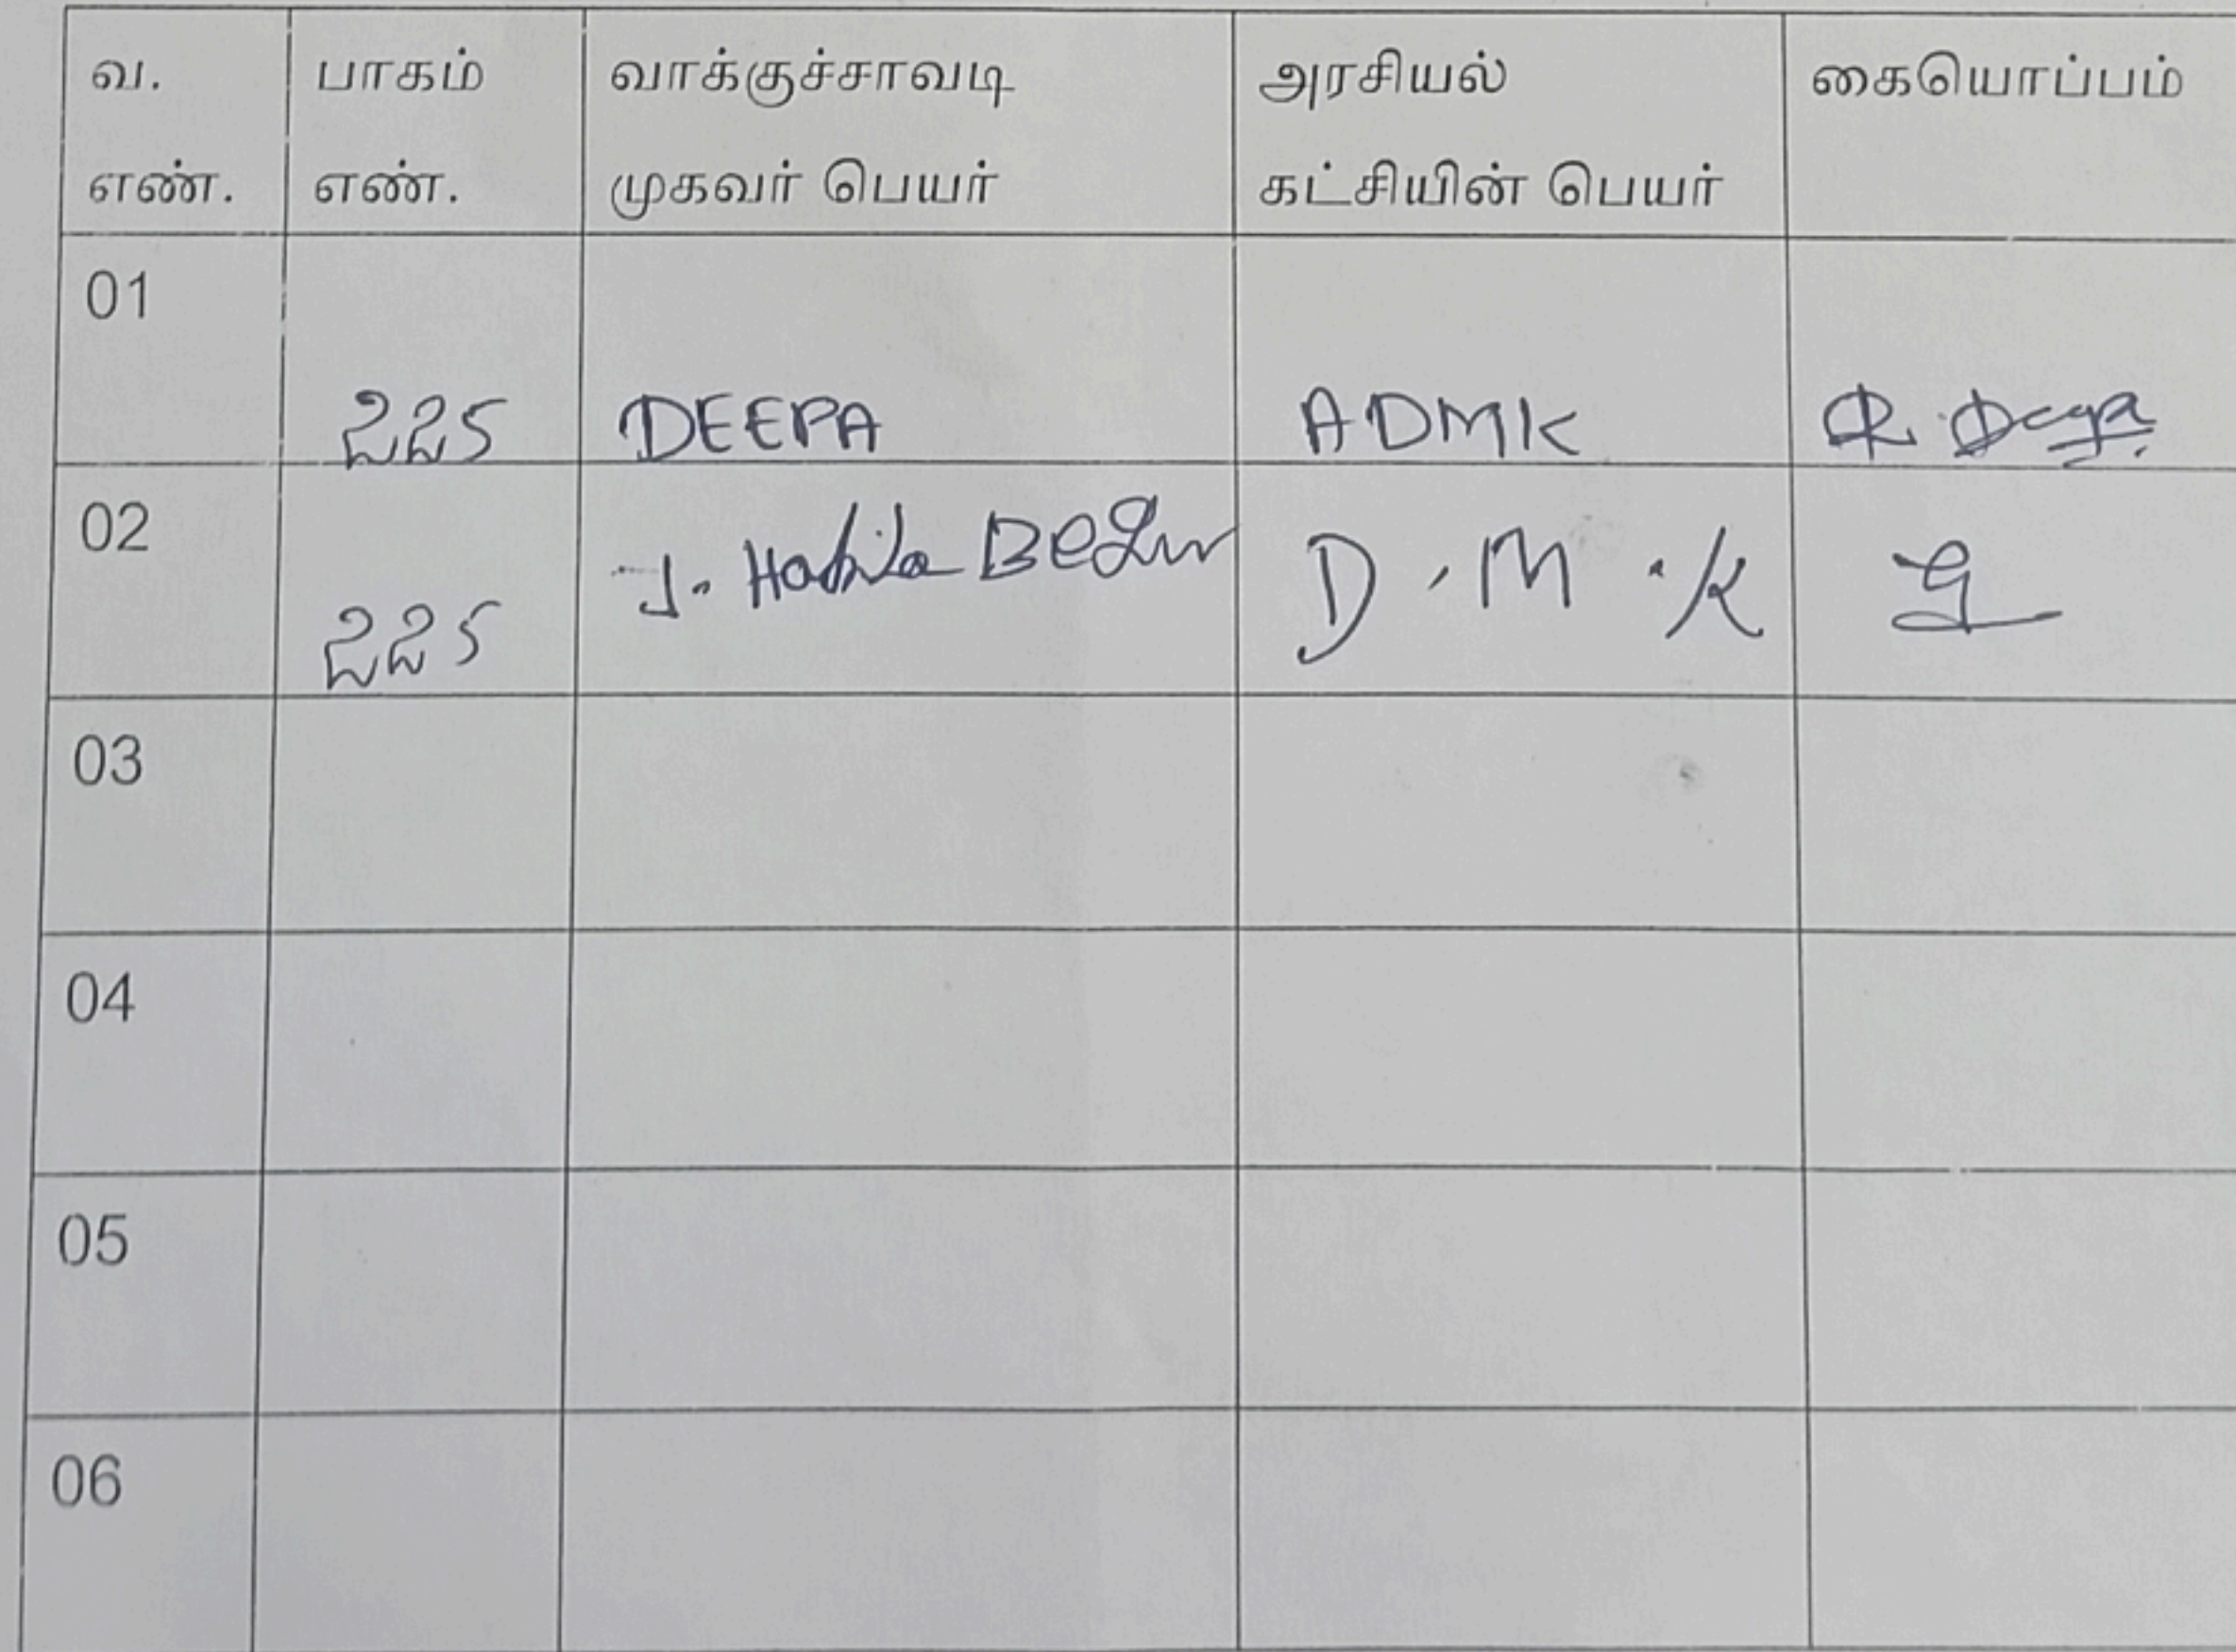 வ. எண். பாகம் எண். வாக்குச்சாவடி முகவர் பெயர் அரசியல் கட்சியின் பெயர் கையொப்பம்
01 225 DEEPA ADMK
02 225 J. Habila D.M.K
03
04
05
06